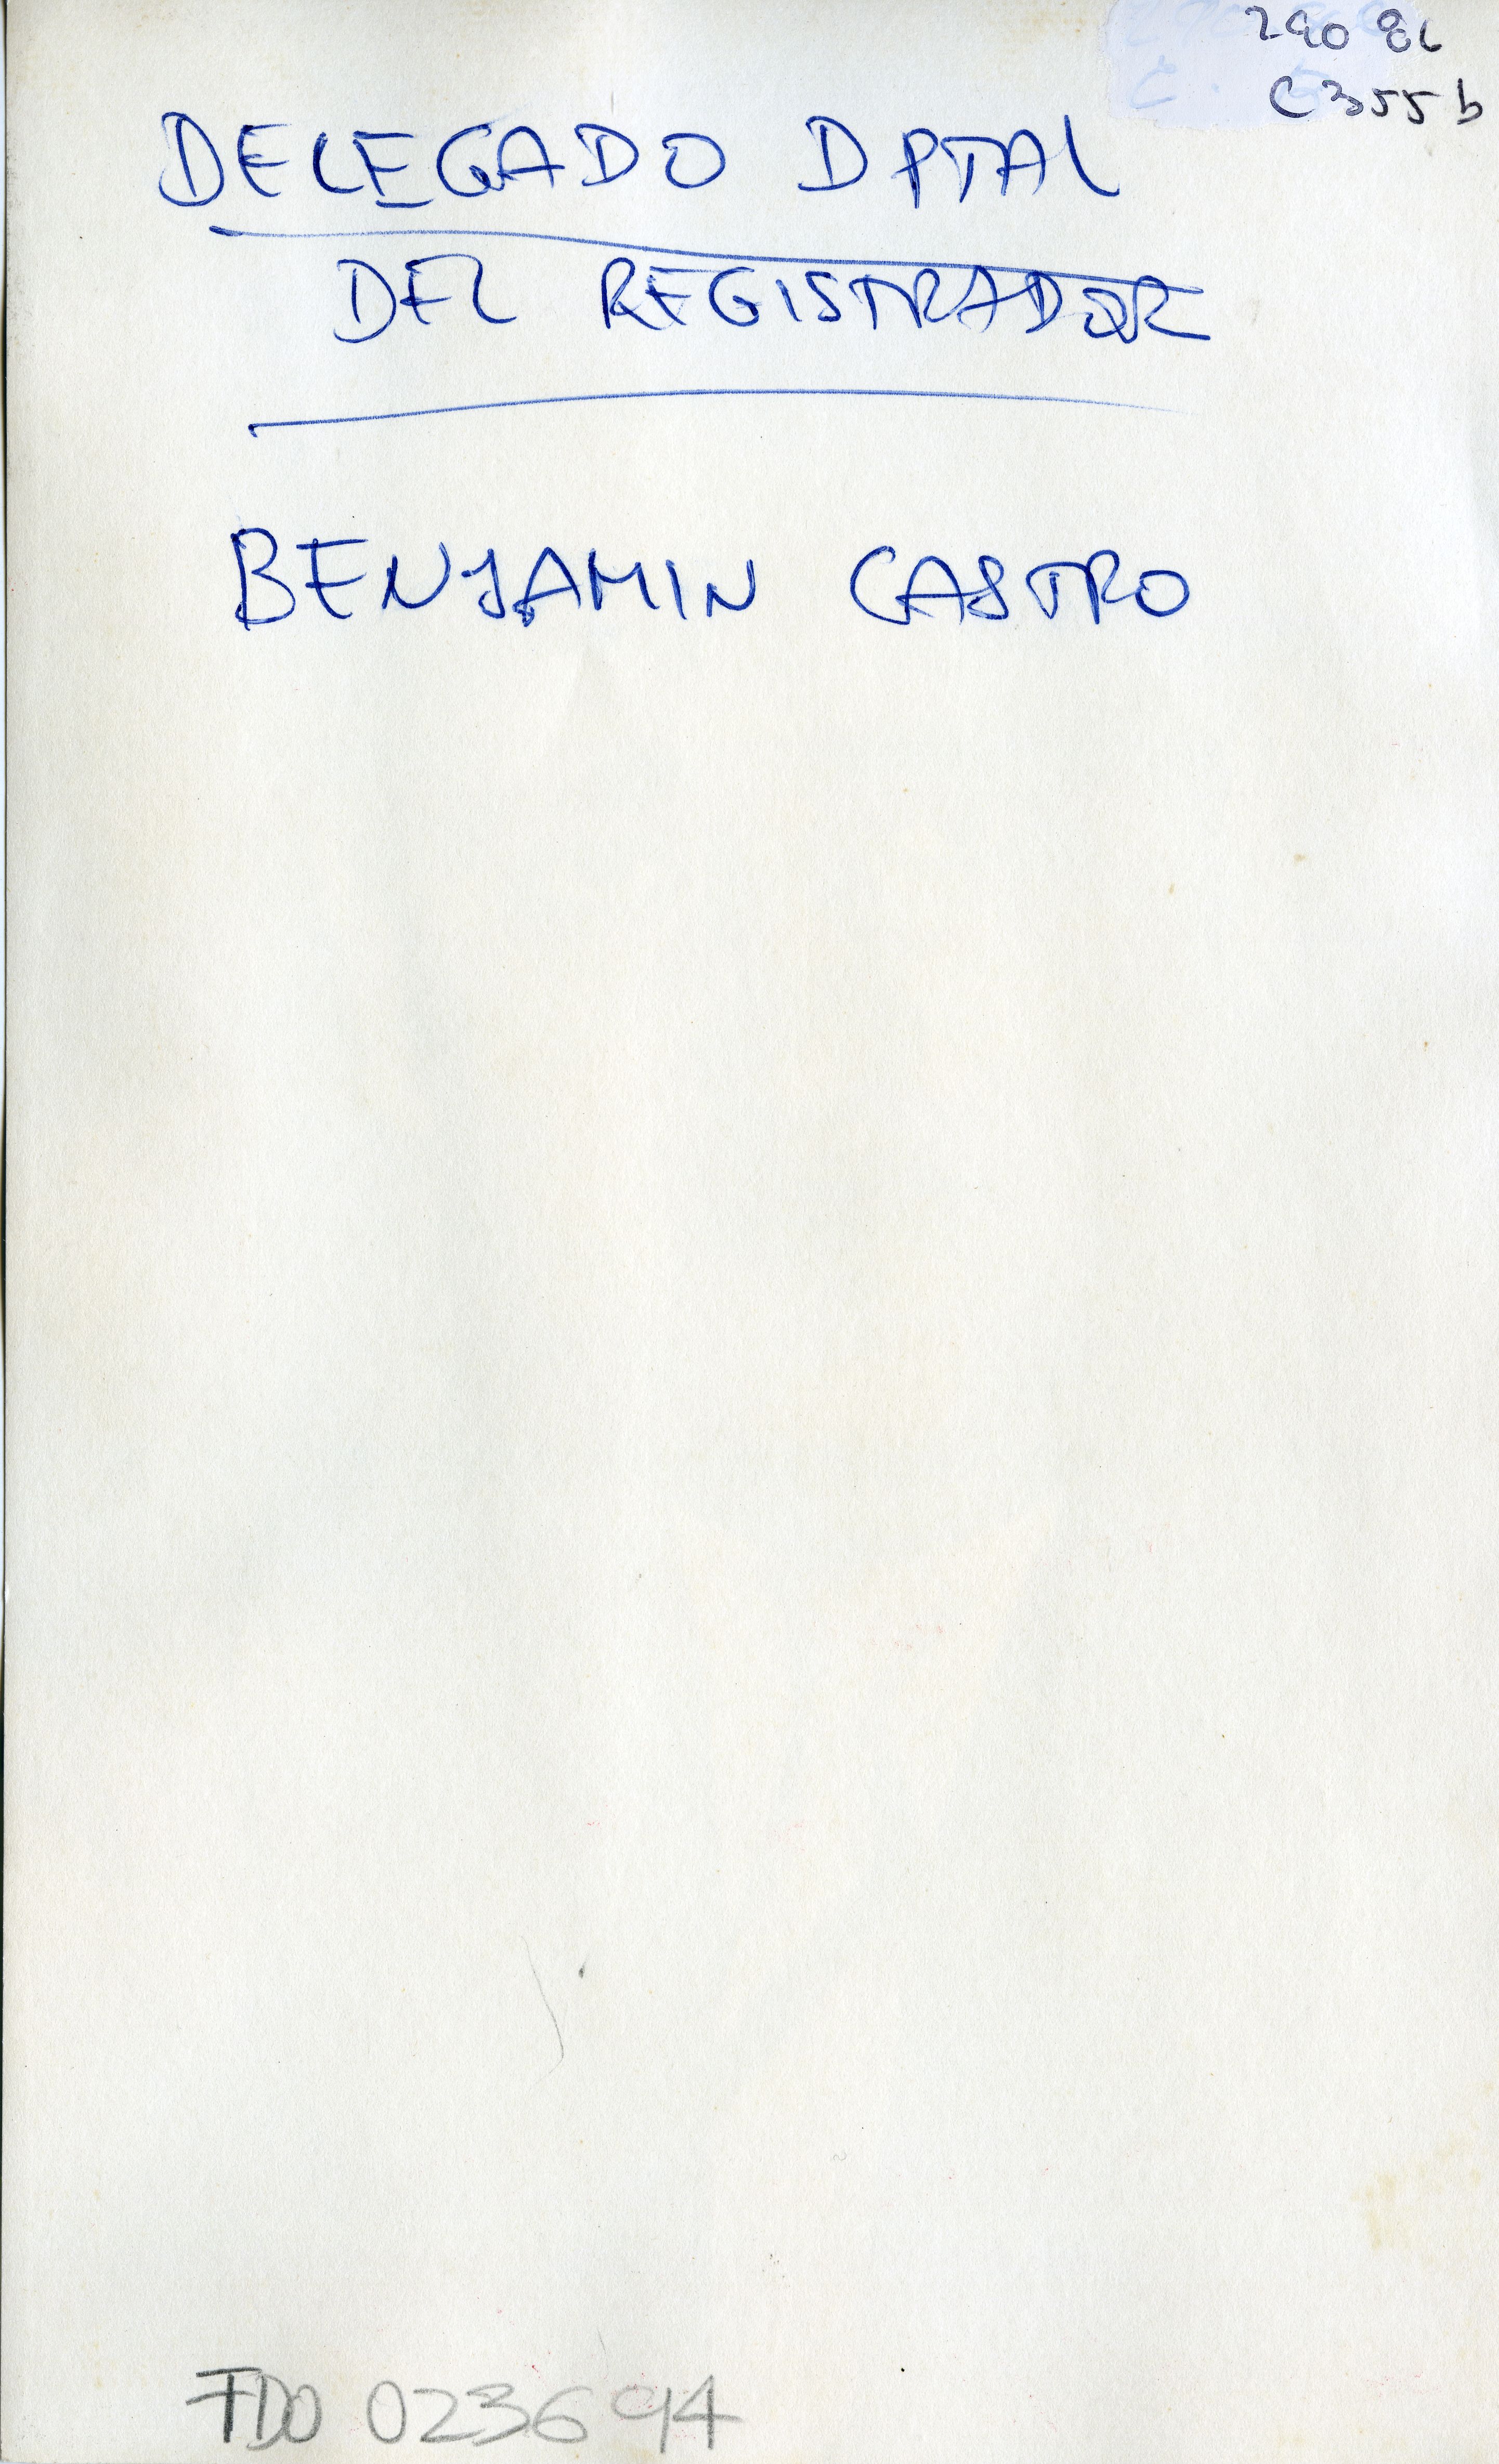 290 86
C355b
DELEGADO DPTAL
DEL REGISTRADOR
BENJAMIN CASTRO
FDO 023694